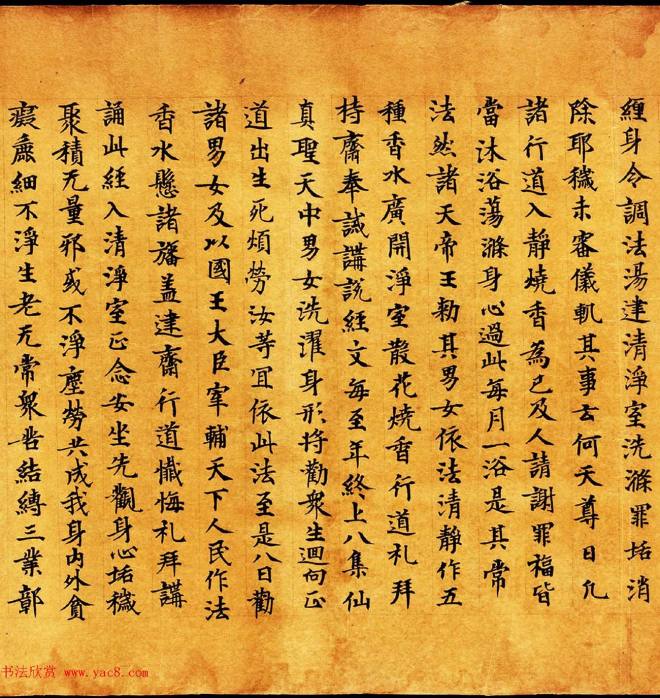 纏身令調法湯建清淨室洗滌罪垢消
除耶穢未審儀軌其事云何天尊曰凡
諸行道入靜燒香為己及人請謝罪福皆
當沐浴蕩滌身心過此每月一浴是其常
法然諸天帝王勑其男女依法清靜作五
種香水廣開淨室散花燒香行道礼拜
持齋奉誡講說經文每至年終上八集仙
真聖天中男女洗濯身形将勸衆生迴向正
道出生死煩勞汝等冝依此法至是八日勸
諸男女及以國王大臣宰輔天下人民作法
香水懸諸旛盖建齋行道懺悔礼拜講
誦此經入清淨室正念安坐先觀身心垢穢
聚積无量邪或不淨塵勞共成我身内外貪
癡麁細不淨生老无常衆苦結縛三業鄣
书法欣赏 www.yac8.com